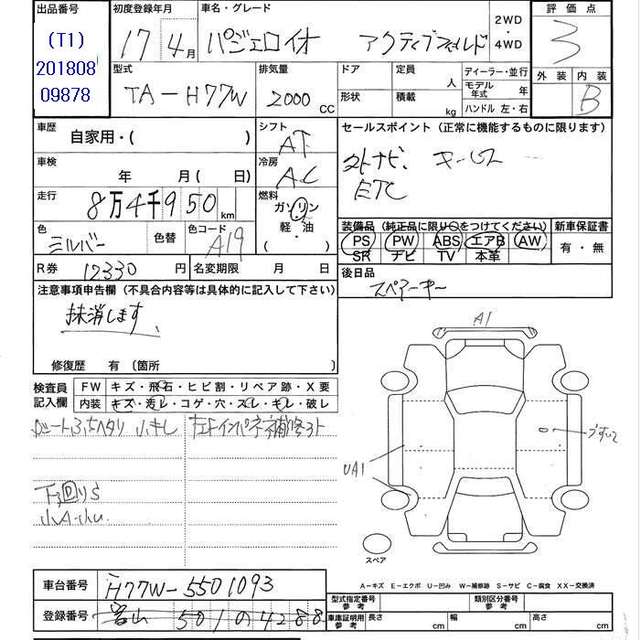 出品番号 初度登録年月 車名・グレード 2WD ・ 4WD 評価点
(T1) 201808 09878
17年4月 パジェロイオ アクティブフィールド 3
型式 排気量 ドア 定員 人 ディーラー・並行 外装 内装
TA-H77W 2000cc 形状 積載 kg モデル年式 年 ハンドル 左・右 B
車歴 自家用・( ) シフト AT セールスポイント (正常に機能するものに限ります)
車検 年 月 ( 日) 冷房 AC ナビ. キーレス
ETC
走行 8万4千950km 燃料 ガソリン・軽油・
装備品 (純正品に限り○をつけてください) 新車保証書
色 シルバー 色替 色コード A19 PS PW ABS エアB AW 有・無
SR ナビ TV 本革
R券 12330円 名変期限 月 日 後日品
スペアーキー
注意事項申告欄 (不具合内容等は具体的に記入して下さい)
抹消します
修復歴 有 (箇所 )
検査員記入欄 FW キズ・飛石・ヒビ割・リペア跡・X要
内装 キズ・汚レ・コゲ・穴・スレ・キレ・破レ
シートふちヘタリ 小キレ
下回りS
小A・小U
A1
UA1
スペア
A-キズ E-エクボ U-凹み W-補修跡 S-サビ C-腐食 XX-交換済
車台番号 H77W-5501093
登録番号 富山 501 の 4288
型式指定番号 参考 類別区分番号 参考
車庫証明 参考 長さ cm 幅 cm 高さ cm